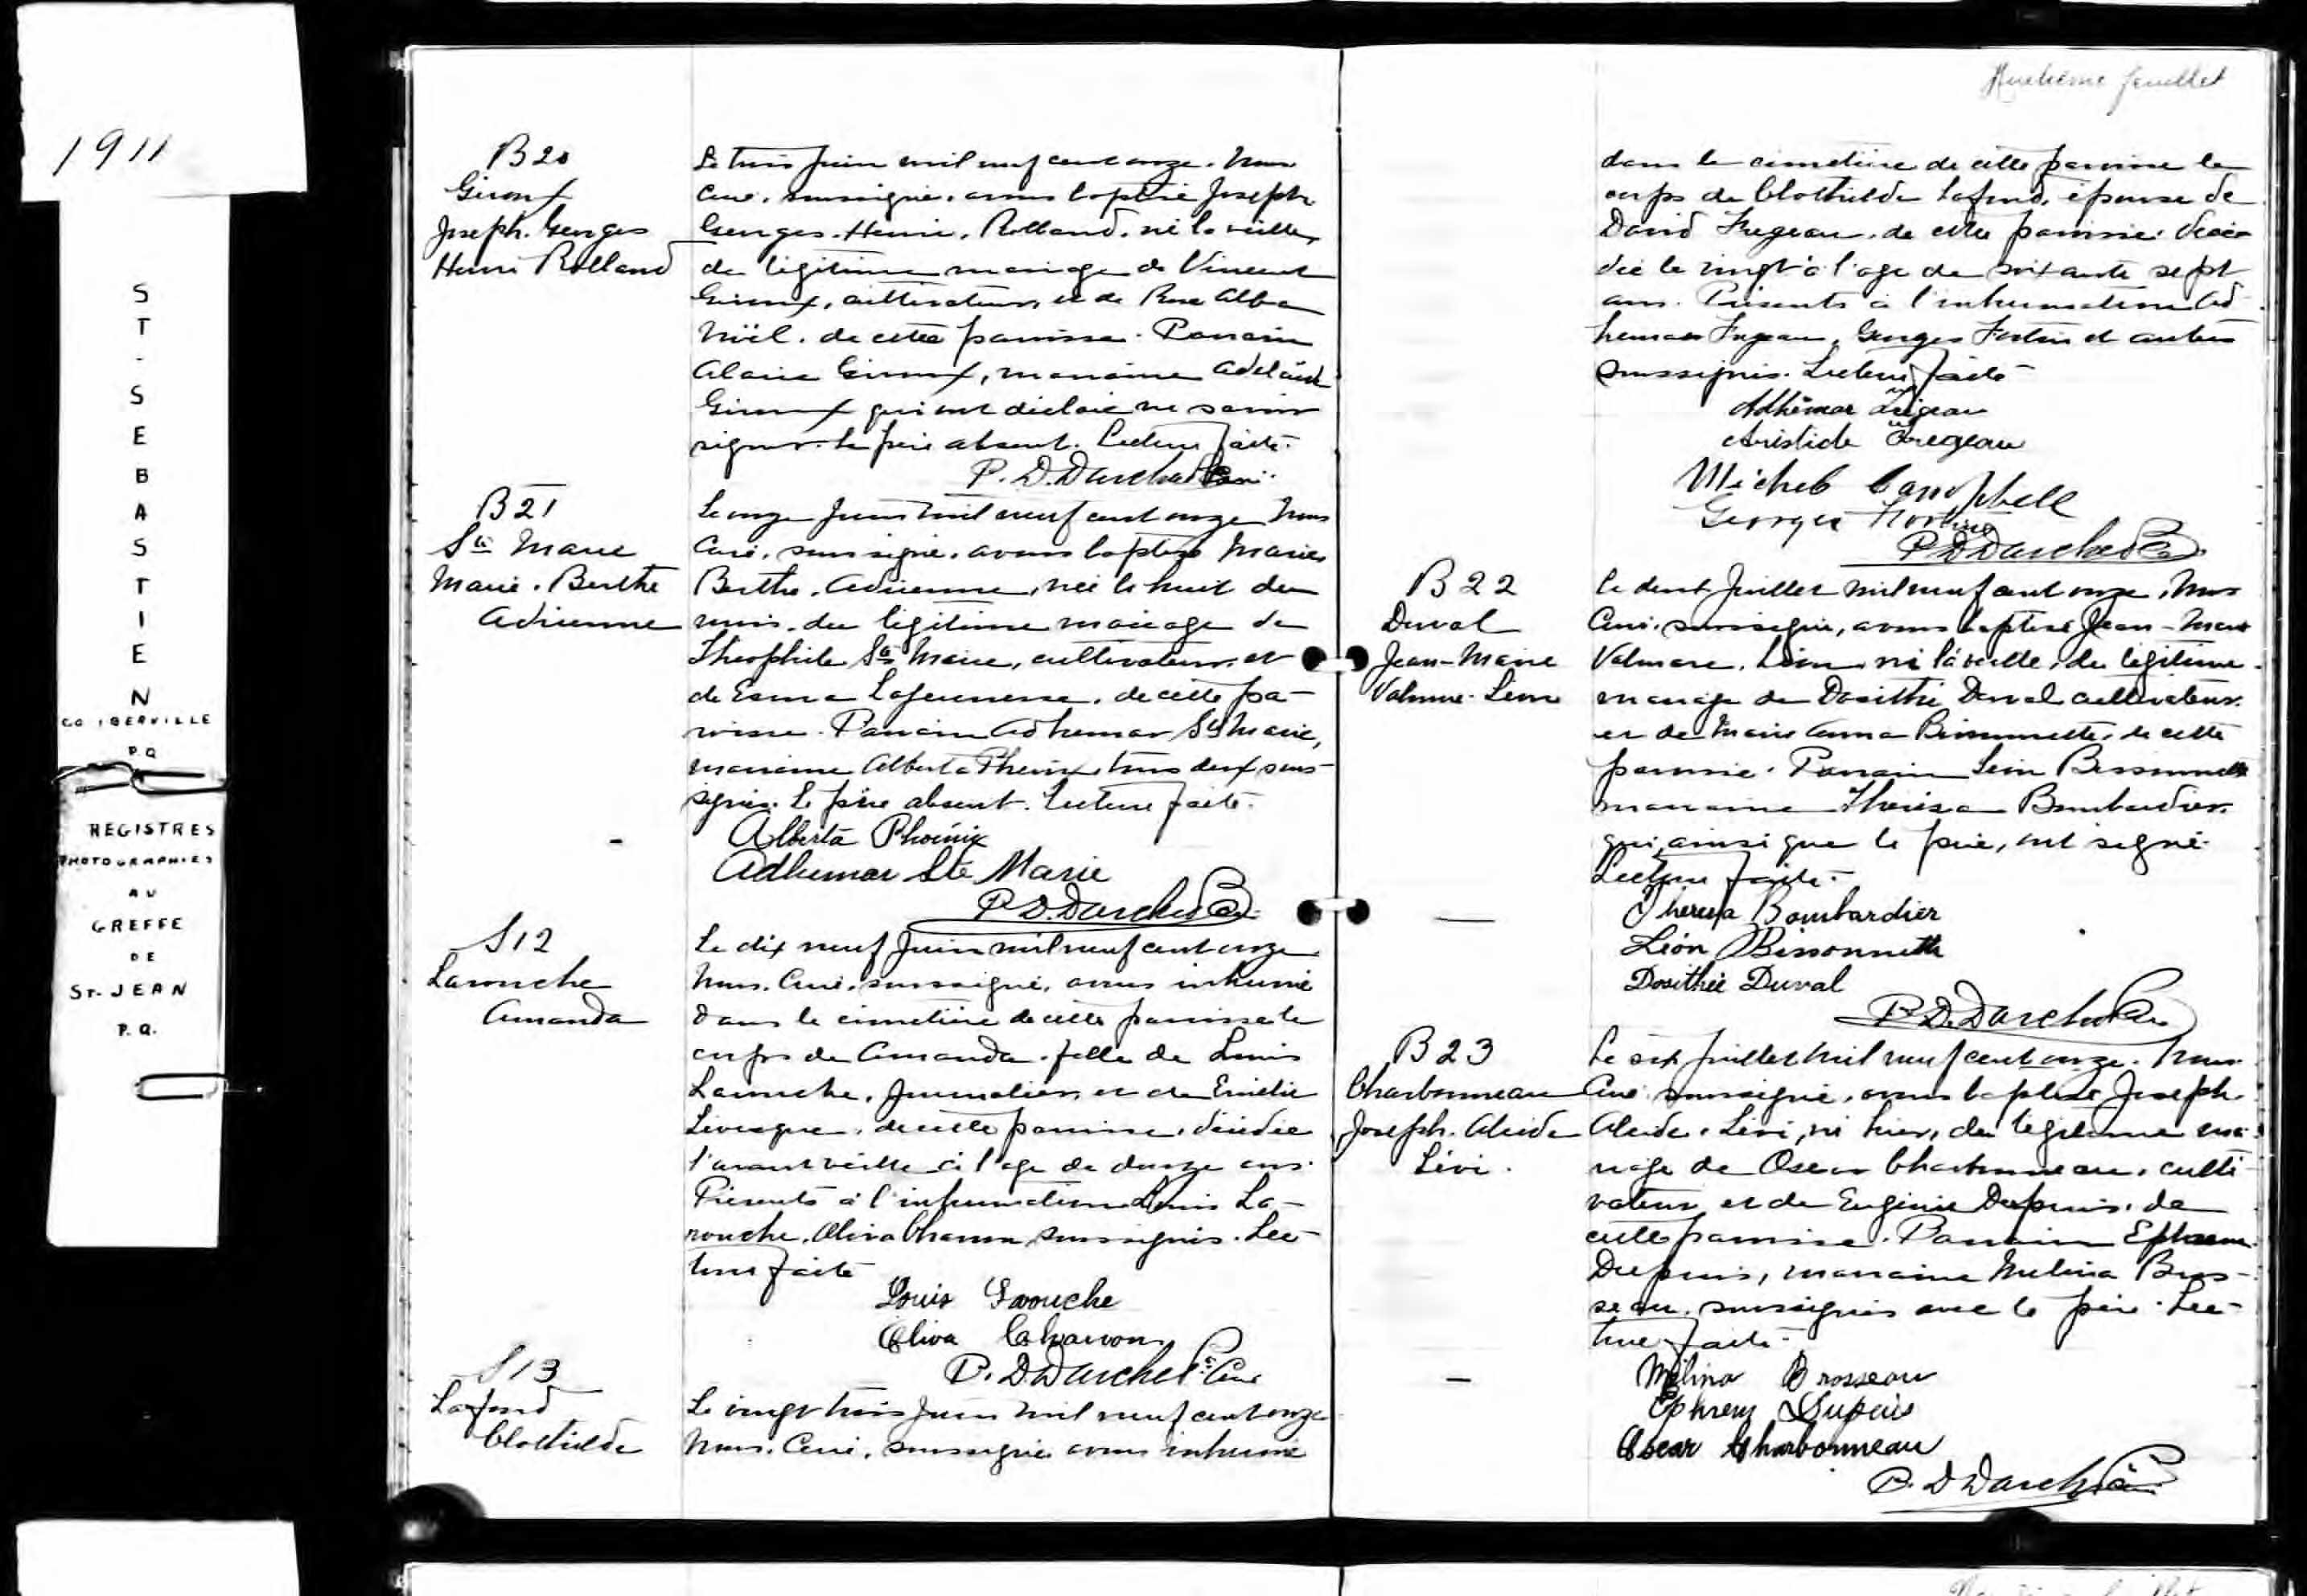 1911
ST-SEBASTIEN
CO IBERVILLE
P.Q
REGISTRES
PHOTOGRAPHIES
AU
GREFFE
DE
ST. JEAN
P.Q.
B20
Giroux
Joseph. Georges
Henri Rolland
Le trois juin mil neuf cent onze. Nous
Curé, soussigné, avons baptisé Joseph
Georges. Henri. Rolland. né la veille,
du légitime mariage de Vincent
Giroux, cultivateur, et de Rose Alba
Noël. de cette paroisse. Parrain
Giroux, marraine Adelaïde
Giroux qui ont déclaré ne savoir
signer. Le père absent. Lecture faite.
P. D. Curé.
B21
Ste Marie
Marie. Berthe
Adrienne
Le onze juin mil neuf cent onze Nous
Curé, soussigné, avons baptisé Marie
Berthe. Adrienne, née le huit du
mois, du légitime mariage de
Théophile Ste Marie, cultivateur, et
de Lajeunesse, de cette pa-
roisse. Parrain Adhemar Ste Marie,
marraine Alberta tous deux sous-
signés. Le père absent. Lecture faite.
Alberta Phoénix
Adhemar Ste Marie
P. D.
S12
Larouche
Amanda
Le dix neuf juin mil neuf cent onze
Nous. Curé, soussigné, avons inhumé
dans le cimetière de cette paroisse le
corps de Amanda. fille de Louis
Larouche, journalier, et de Emélie
Levesque, de cette paroisse, décédée
l'avant veille à l'age de ans.
Présents à l'inhumation Louis La-
rouche, Oliva soussignés. Lec-
ture faite
Louis Larouche
Oliva
P. D. Curé
S13
Lafond
Clothilde
Le vingt trois juin mil neuf cent onze
Nous. Curé, soussigné avons inhumé
feuillet
dans le cimetière de cette paroisse le
corps de Clothilde Lafond, épouse de
David Fregeau, de cette paroisse, décé-
dée le vingt à l'age de soixante sept
ans. Présents à l'inhumation Ad-
hemar Fregeau, Georges Fortin et autres
soussignés. Lecture faite
Adhémar Fregeau
Aristide Fregeau
Michel Campbell
Georges
P. D.
B22
Duval
Jean-Marie
Léon
Le deux Juillet mil neuf cent onze, Nous
Curé, soussigné, avons baptisé Jean-Marie
Valmore. Léon, né la veille, du légitime
mariage de Dosithé Duval cultivateur
et de Marie Anna Bissonnette, de cette
paroisse. Parrain Léon Bissonnette
marraine Théresa Bombardier
qui, ainsi que le père, ont signé.
Lecture faite.
Theresa Bombardier
Léon Bissonnette
Dosithée Duval
P. D.
B23
Charbonneau
Joseph. Alcide
Lévi.
Le six juillet mil neuf cent onze. Nous
Curé soussigné, avons baptisé Joseph.
Alcide. Lévi, né hier, du légitime ma-
riage de Oscar Charbonneau, culti-
vateur, et de Eugénie Dupuis, de
cette paroisse. Parrain Ephrem
Dupuis, marraine Melina Bros-
seau, soussignés avec le père. Lec-
ture faite.
Mélina Brosseau
Ephrem Dupuis
Oscar Charbonneau
P. D.